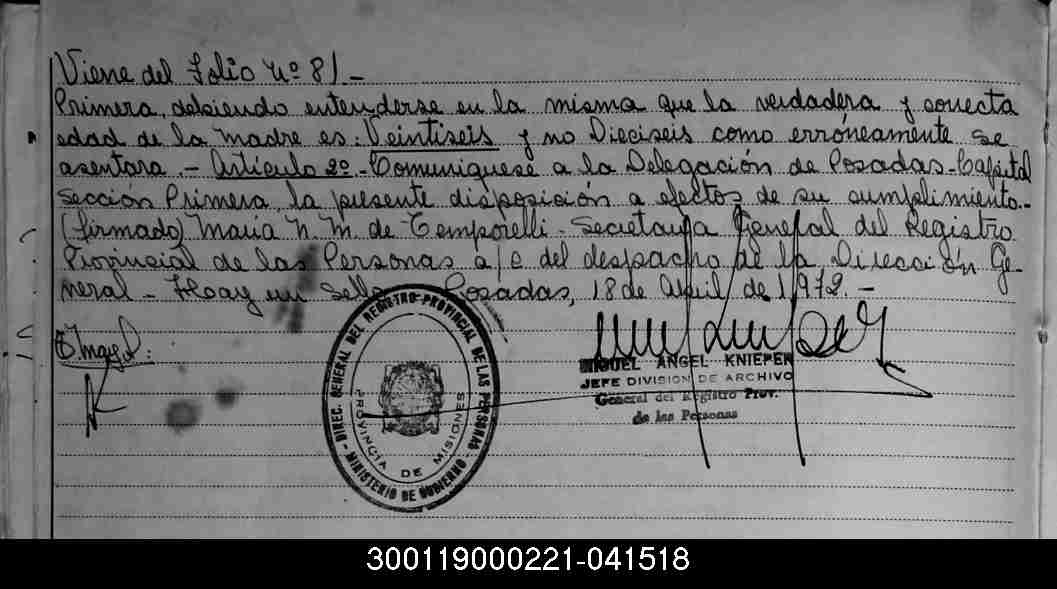 Viene del Folio Nº 81 -
Primera, debiendo entenderse en la misma que la verdadera y correcta
edad de la madre es: Veintiseis y no Dieciseis como erróneamente se
asentara. - Artículo 2º - Comuniquese a la Delegación de Posadas - Capital
Sección Primera, la presente disposición a efectos de su cumplimiento. -
(firmado) María N. M. de Temporelli - Secretaria General del Registro
Provincial de las Personas a/c del despacho de la Dirección Ge-
neral - Hay un Sello - Posadas, 18 de Abril de 1972. -
MIGUEL ANGEL KNIEPER
JEFE DIVISION DE ARCHIVO
General del Registro Prov.
de las Personas
DIREC. GENERAL DEL REGISTRO PROVINCIAL DE LAS PERSONAS
PROVINCIA DE MISIONES
MINISTERIO DE GOBIERNO
300119000221-041518